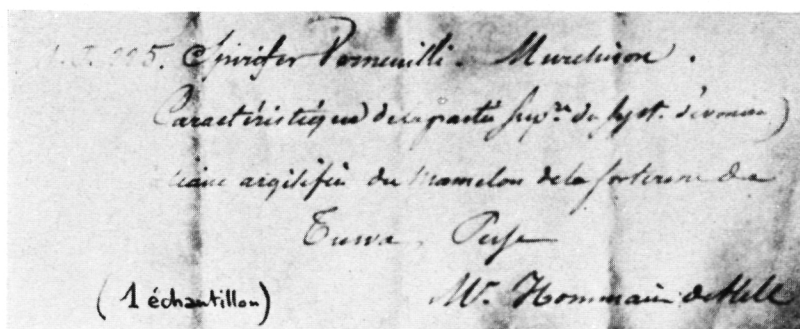 Spirifer Verneuilli. Murchison.
Caractéristique de la partie supre du syst. dévonien)
argilifié du Mamelon de la forteresse de
Tuwa. Perse
(1 échantillon)
Mr. Hommaire de Hell